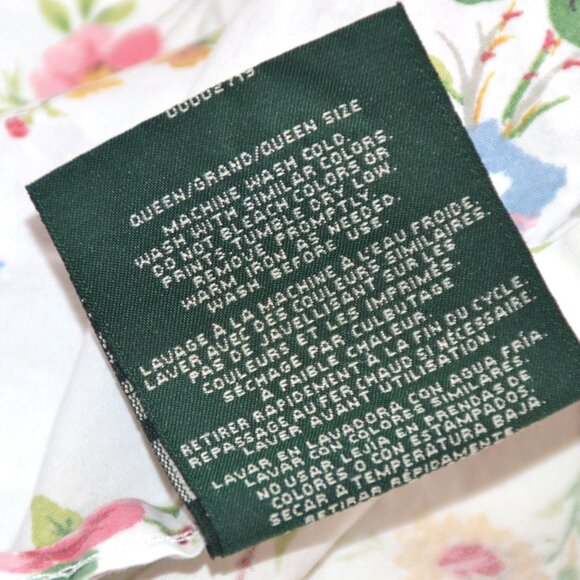 00002719
QUEEN/GRAND/QUEEN SIZE
MACHINE WASH COLD.
WASH WITH SIMILAR COLORS.
DO NOT BLEACH COLORS OR
PRINTS. TUMBLE DRY LOW.
REMOVE PROMPTLY.
WARM IRON AS NEEDED.
WASH BEFORE USE.
LAVAGE À LA MACHINE À L'EAU FROIDE.
LAVER AVEC DES COULEURS SIMILAIRES.
PAS DE JAVELLISANT SUR LES
COULEURS ET LES IMPRIMÉS.
SÉCHAGE PAR CULBUTAGE
À FAIBLE CHALEUR.
RETIRER RAPIDEMENT À LA FIN DU CYCLE.
REPASSAGE AU FER CHAUD SI NÉCESSAIRE.
LAVER AVANT UTILISATION.
LAVAR EN LAVADORA CON AGUA FRÍA.
LAVAR CON COLORES SIMILARES.
NO USAR LEJIA EN PRENDAS DE
COLORES O CON ESTAMPADOS.
SECAR A TEMPERATURA BAJA.
RETIRAR RÁPIDAMENTE.